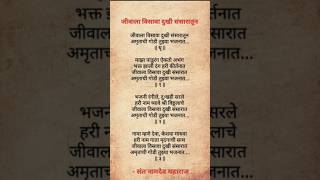 जीवाला विसावा दुखी संसारातून
जीवाला विसावा दुखी संसारातून
अमृताची गोडी तुझ्या भजनात...
॥ धृ ॥
माझा पांडुरंग ऐकतो अभंग
भक्त झाले दंग हरी कीर्तनात
जीवाला विसावा दुखी संसारातून
अमृताची गोडी तुझ्या भजनात...
॥ १ ॥
भजनी रंगीले, दुःखही सरले
हरी नाम प्याले श्री विठ्ठलाचे
जीवाला विसावा दुखी संसारातून
अमृताची गोडी तुझ्या भजनात...
॥ २ ॥
नामा म्हणे देवा, केशवा माधवा
हरी नाम गाता मृदुंगाची साथ
जीवाला विसावा दुखी संसारातून
अमृताची गोडी तुझ्या भजनात...
॥ ३ ॥
- संत नामदेव महाराज